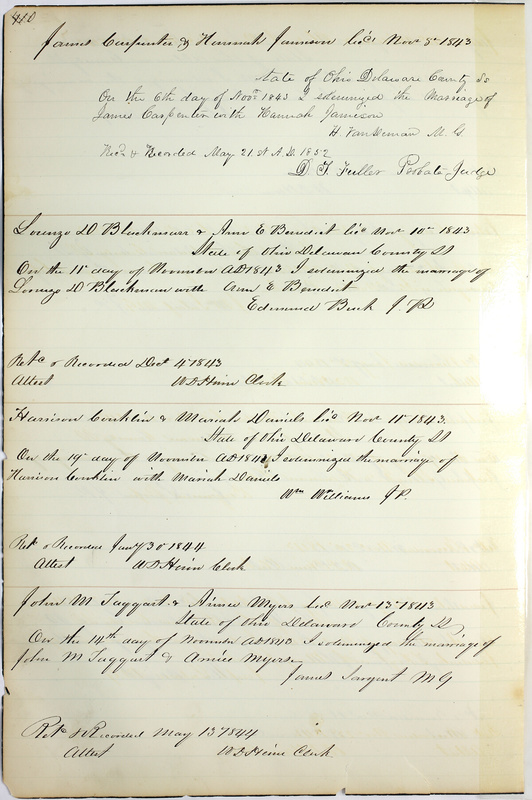 410
James Carpenter & Hannah Jamison lic. Nov 8th 1843
State of Ohio Delaware County Ss
On the 6th day of Nov. 1843 I solemnized the Marriage of
James Carpenter with Hannah Jamison
H Vandeman M. G
Rec. & Recorded May 21st A.D. 1852
D. T. Fuller Probate Judge
Lorenzo D Blackmarr & Ann E Benedict lic. Nov 10th 1843
State of Ohio Delaware County SS
On the 11th day of November AD 1843 I solemnized the marriage of
Lorenzo D Blackman with Ann E Benedict
Edmund Buck J. P.
Retd & Recorded Dect 4th 1843
Attest W D Heim Clerk
Harrison Conklin & Mariah Daniels lic. Nov 11th 1843.
State of Ohio Delaware County SS
On the day of November AD 1843 I solemnized the marriage of
Harrison Conklin with Mariah Daniels
Wm Williams J P.
Retd & Recorded Jany 30th 1844
Attest W D Heim Clerk
John M Taggart & Aimee Myers lic. Nov 13th 1843
State of Ohio Delaware County SS
On the 14th day of November AD 1843 I solemnized the marriage of
John M Taggart & Aimee Myers
James Sargent M G
Retd & Recorded May 13th 1844
Attest W D Heim Clerk